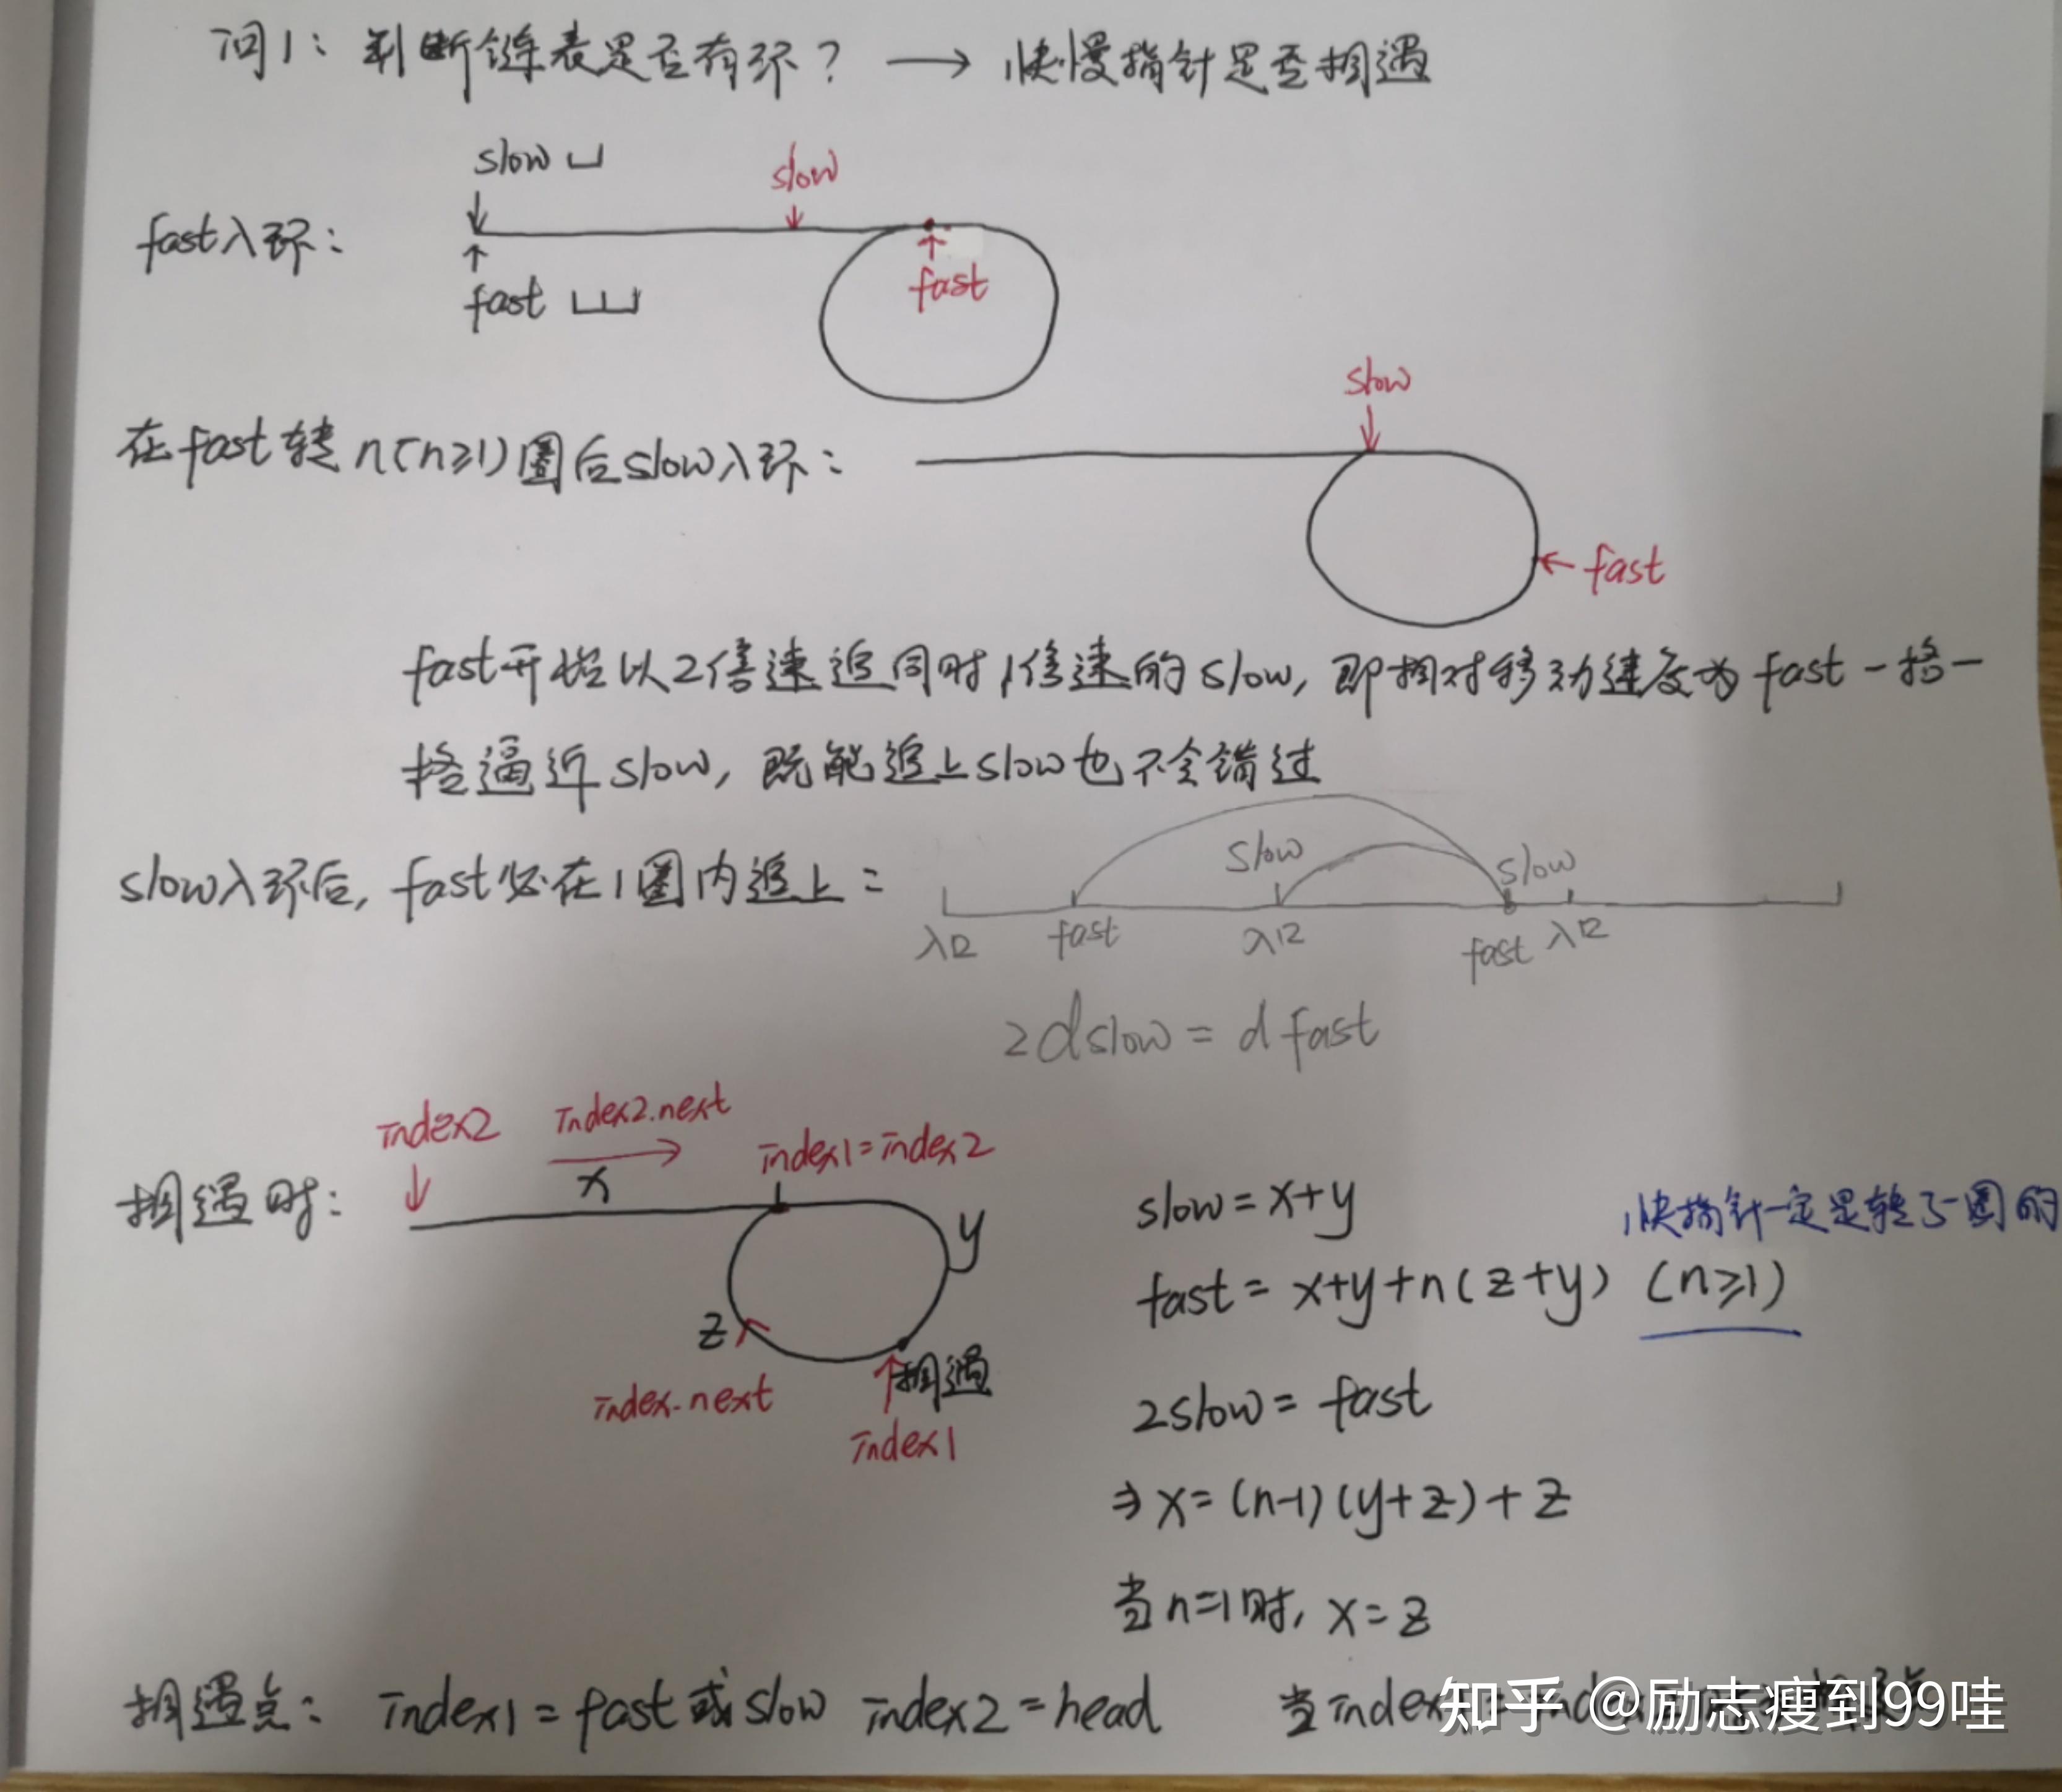 问1：判断链表是否有环？ → 快慢指针是否相遇
slow
slow
fast入环：
fast
fast
slow
在fast转n(n≥1)圈后slow入环：
← fast
fast开始以2倍速追同时1倍速的slow, 即相对移动速度为fast一格一
格逼近slow, 既能追上slow也不会错过
slow入环后, fast必在1圈内追上：
slow
slow
入口 fast 入口 fast 入口
2dslow = dfast
index2 index2.next index1=index2
相遇时：
x
y
z
index.next
相遇
index1
slow = x+y
快指针一定是转了一圈的
fast = x+y+n(z+y) (n≥1)
2slow = fast
⇒ x = (n-1)(y+z)+z
当n=1时, x=z
相遇点： index1 = fast或slow index2 = head 当index
知乎 @励志瘦到99哇